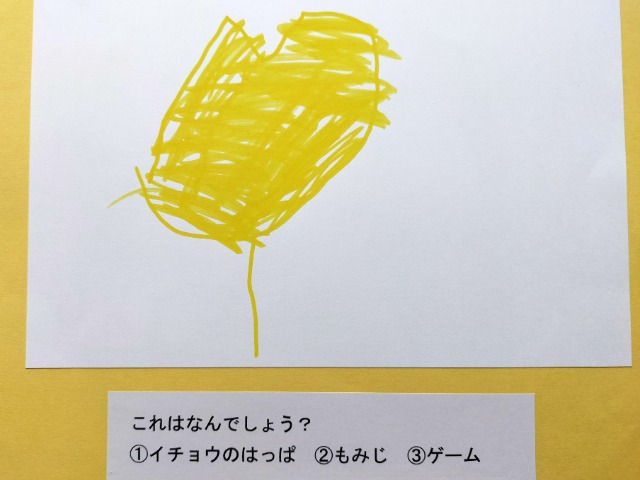 これはなんでしょう？
①イチョウのはっぱ　②もみじ　③ゲーム